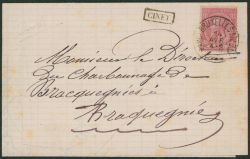 CINEY
Monsieur le Directeur
Du Charbonnage de
Bracquegnies à
Bracquegnies